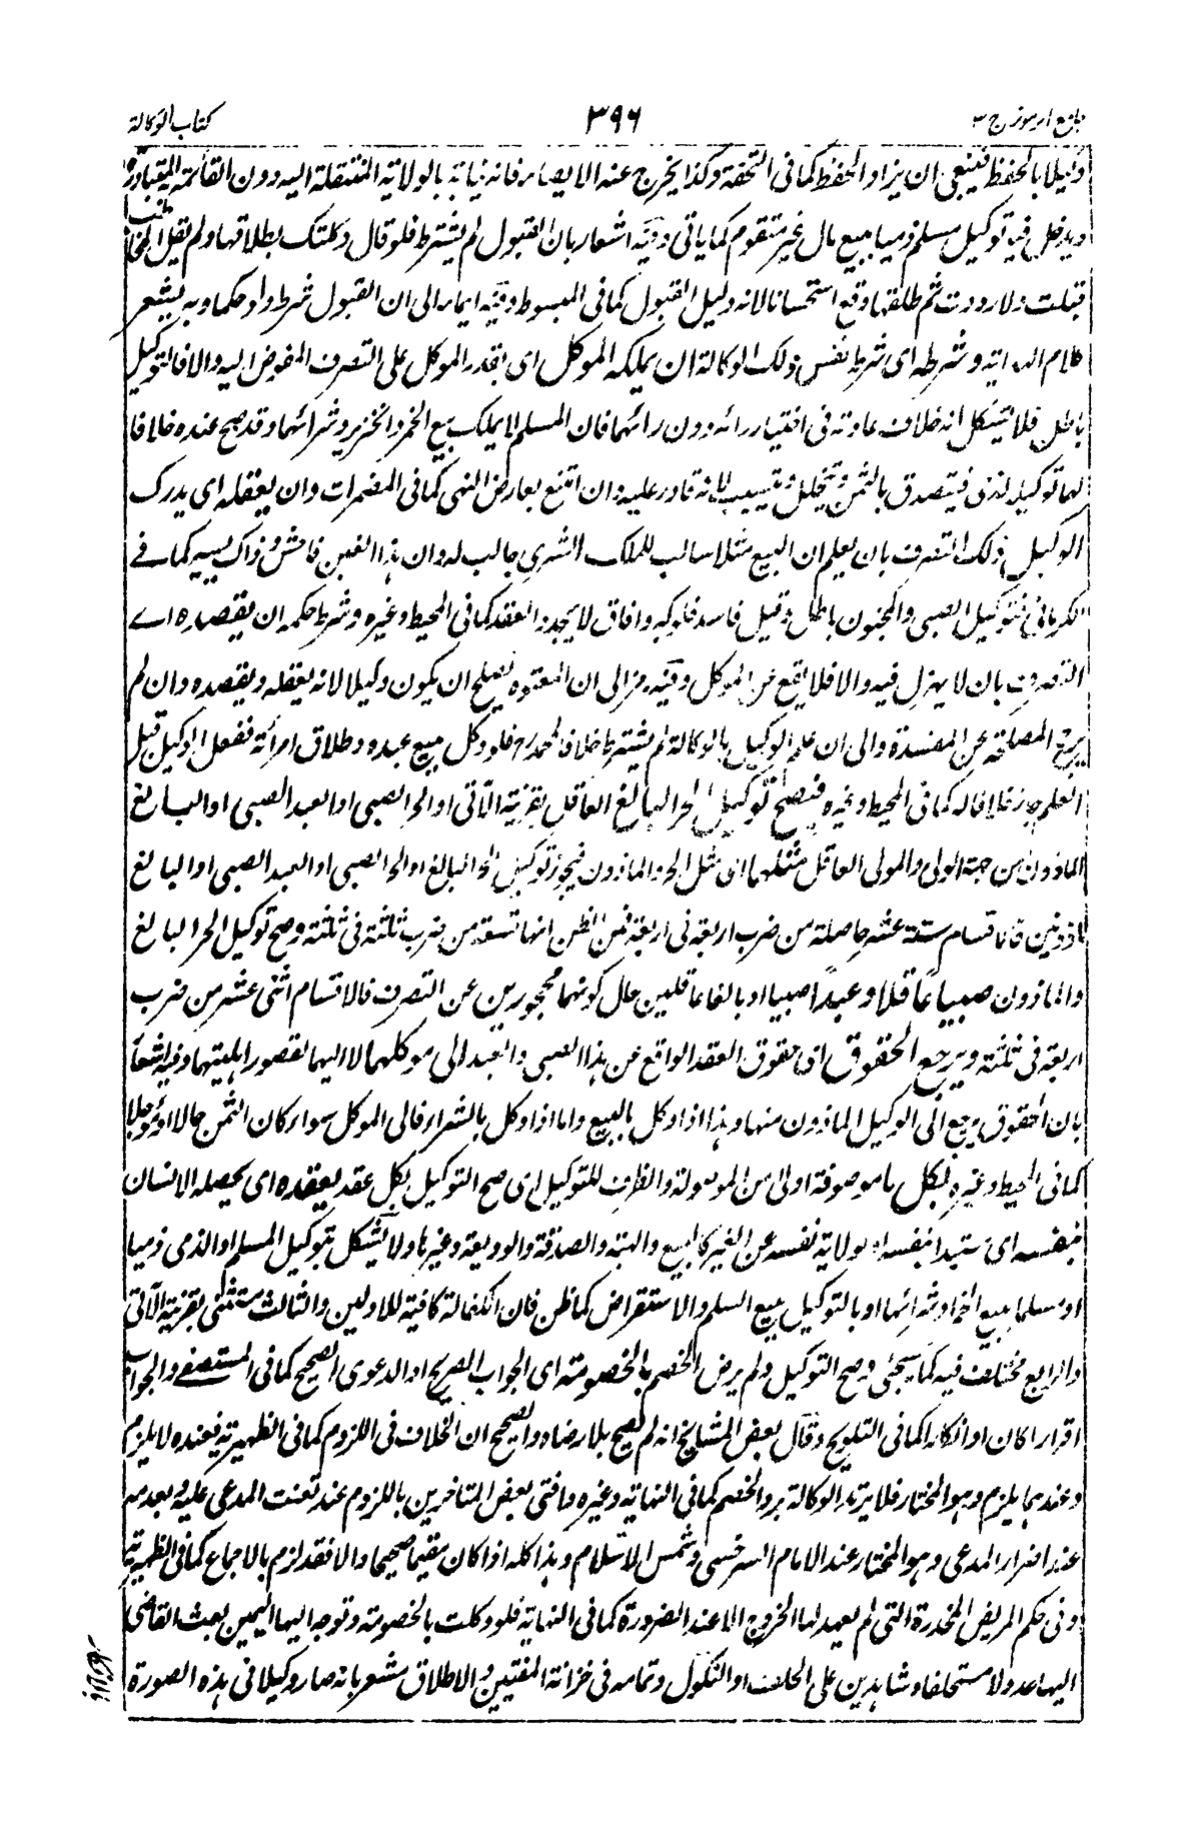 جامع الرموز ج ٣
٣٩٦
كتاب الوكالة
وكيلا بالحفظ فينبغى ان يزاد الحفظ كما فى التحفة وكذا يخرج عنه الايصاء فانه نيابة بالولاية المنتقلة اليه دون القائمة به المتبادرة
ويدخل فيه توكيل مسلم ذميا ببيع مال غير متقوم كما ياتى وفيه اشعار بان القبول لم يشترط فلو قال وكلتك بطلاقها ولم يقل المخاطب
قبلت ولا رددت ثم طلقها وقع استحسانا لانه دليل القبول كما فى المبسوط وفيه ايماء الى ان القبول شرط ولو حكما وبه يشعر
كلام الهداية وشرطه اى شرط نفس ذلك الوكالة ان يملكه الموكل اى بقدر الموكل على التصرف المفوض اليه والا فالتوكيل
باطل فلا يشكل انه خلاف عادته فى اختيار رائه دون رائهما فان المسلم لا يملك بيع الخمر والخنزير وشرائهما وقد صح عنده خلافا
لهما توكيله لذمى فيتصدق بالثمن ويتخلل ويتسيب لانه قادر عليه وان امتنع بعارض النهى كما فى المضمرات وان يعقله اى يدرك
الوكيل ذلك التصرف بان يعلم ان البيع مثلا سالب للملك الشرى جالب له وان هذا الغبن فاحش وذاك يسير كما فى
الكرمانى فتوكيل الصبى والمجنون باطل وقيل فاسد فلو كبر وافاق لا يجدد العقد كما فى المحيط وغيره وشرط حكمه ان يقصده اى
التصرف بان لا يهزل فيه والا فلا يقع عن الموكل وفيه رمز الى ان المعتوه يصلح ان يكون وكيلا لانه يعقله ويقصده وان لم
يرجح المصلحة عن المفسدة والى ان علم الوكيل بالوكالة لم يشترط خلافا لمحمد رح فلو وكل ببيع عبده وطلاق امرأته ففعل الوكيل قبل
العلم جاز خلافا له كما فى المحيط وغيره فيصح توكيل الحر البالغ العاقل بقرينة الآتى او الحر الصبى او العبد الصبى او البالغ
الماذون من جهة الولى والمولى العاقل مثلهما اى مثل الحر والماذون فيجوز توكيل الحر البالغ او الحر الصبى او العبد الصبى او البالغ
ماذونين فالاقسام ستة عشر حاصلة من ضرب اربعة فى اربعة فمن الظن انها تسعة من ضرب ثلثة فى ثلثة وصح توكيل الحر البالغ
والماذون صبيا عاقلا وعبدا صبيا او بالغا عاقلين حال كونهما محجورين عن التصرف فالاقسام اثنى عشر من ضرب
اربعة فى ثلثة ويرجع الحقوق اى حقوق العقد الواقع عن هذا الصبى والعبد الى موكلهما لا اليهما لقصور اهليتهما وفيه اشعار
بان الحقوق يرجع الى الوكيل الماذون منهما وهذا اذا وكل بالبيع واما اذا وكل بالشراء فالى الموكل سواء كان الثمن حالا او مؤجلا
كما فى المحيط وغيره بكل ما موصوفة اولى من الموصولة والظرف للتوكيل اى صح التوكيل بكل عقد يعقده اى يحصله الانسان
بنفسه اى مستبدا بنفسه او بولاية نفسه عن الغير كالبيع والهبة والصدقة والوديعة وغيرها ولا يشكل بتوكيل المسلم او الذمى ذميا
او مسلما ببيع الخمر او شرائها او بالتوكيل ببيع السلم والاستقراض كما ظن فان الكفالة كافية للاولين والثالث مستثنى بقرينة الآتى
والرابع مختلف فيه كما سيجئ وصح التوكيل ولم يرض الخصم بالخصومة اى الجواب الصريح او الدعوى الصحيح كما فى المستصفى والجواب
اقرارا كان او انكارا كما فى التلويح وقال بعض المشايخ انه لم يصح بلا رضاه والصحيح ان الخلاف فى اللزوم كما فى الظهيرية فعنده لا يلزم
وعندهما يلزم وهو المختار فلا يرتد الوكالة برد الخصم كما فى النهاية وغيره وافتى بعض المتاخرين باللزوم عند تعنت المدعى عليه وبعدمه
عند اضرار المدعى وهو المختار عند الامام السرخسى وشمس الاسلام وهذا كله اذا كان مقيما صحيحا والا فقد لزم بالاجماع كما فى الظهيرية
وفى حكم المريض المخدرة التى لم يعهد لها الخروج الا عند الضرورة كما فى النهاية فلو وكلت بالخصومة وتوجه اليها اليمين بعث القاضى
اليها عدولا مستحلفا وشاهدين على الحلف او النكول وتمامه فى خزانة المفتيين والاطلاق مشعر بانه صار وكيلا فى هذه الصورة